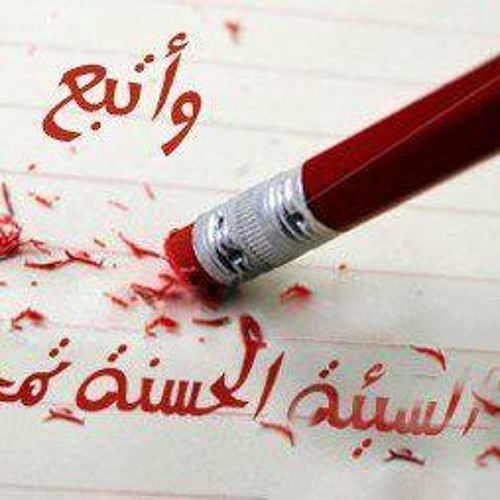 وأتبع
السيئة الحسنة تمح